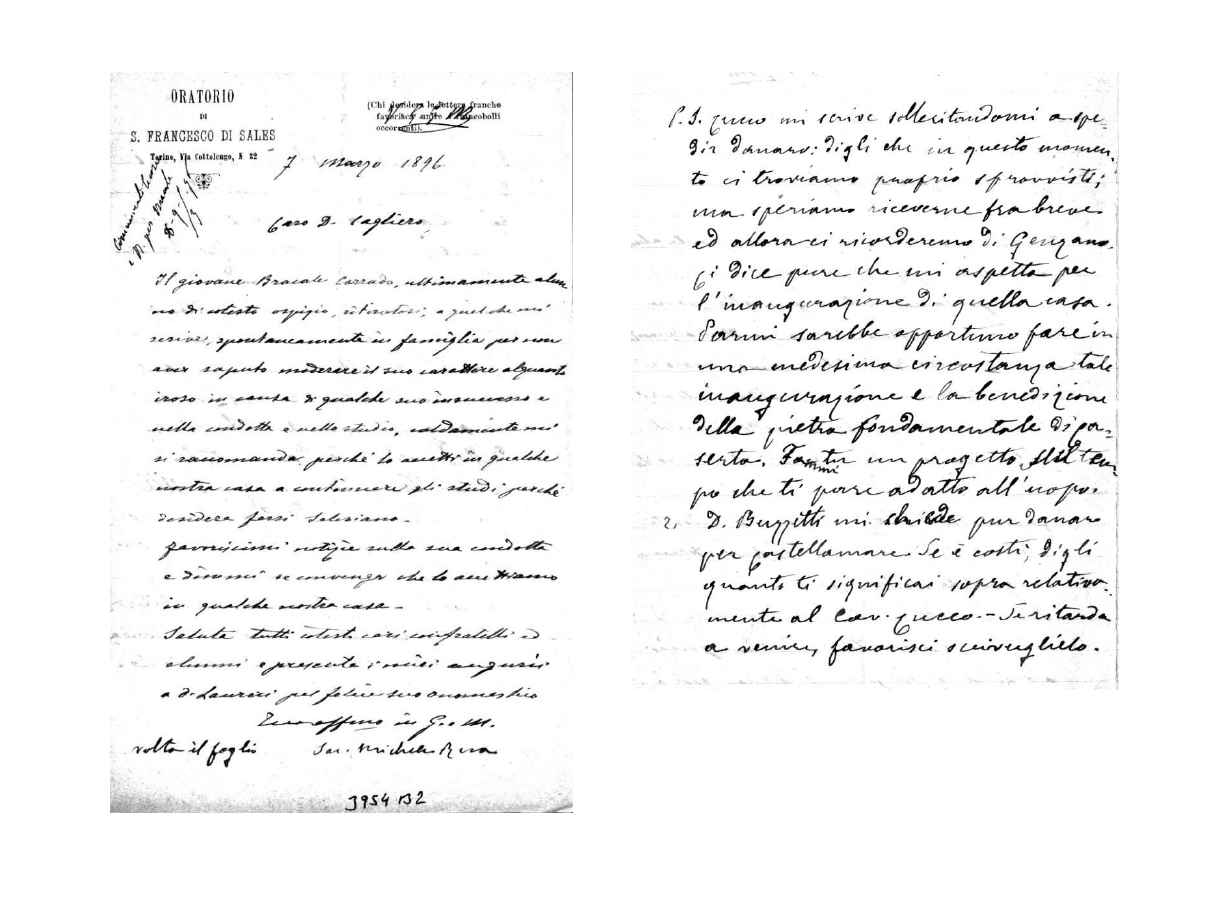 ORATORIO
DI
S. FRANCESCO DI SALES
Torino, Via Cottolengo, N 32
(Chi desidera le lettere franche
favorisca unire i francobolli
occorrenti).
7 Marzo 1896
Caro D. Cagliero,
Il giovane Bracale Corrado, ultimamente alun
no di cotesto ospizio, ritiratosi, a quel che mi
scrive, spontaneamente in famiglia per non
aver saputo moderare il suo carattere alquanto
iroso in causa di qualche suo insuccesso e
nella condotta e nello studio, caldamente mi
si raccomanda, perché lo accetti in qualche
nostra casa a continuare gli studi perché
desidera farsi Salesiano.
Favoriscimi notizie sulla sua condotta
e dimmi se convenga che lo accettiamo
in qualche nostra casa.
Saluta tutti cotesti cari confratelli ed
alunni e presenta i miei augurii
a D. Laureri pel felice suo onomastico
Tuo aff.mo in G. e M.
volta il foglio Sac. Michele Rua
3954 B2
P. S. Cucco mi scrive sollecitandomi a spe-
dir danaro: digli che in questo momen-
to ci troviamo proprio sprovvisti;
ma speriamo riceverne fra breve
ed allora ci ricorderemo di Genzano.
Ci dice pure che mi aspetta per
l'inaugurazione di quella casa.
Parmi sarebbe opportuno fare in
una medesima circostanza tale
inaugurazione e la benedizione
della pietra fondamentale di Ca-
serta. Fammi tu un progetto sul tem-
po che ti pare adatto all'uopo.
2. D. Buzzetti mi chiede pur danaro
per Castellamare. Se è costì, digli
quanto ti significai sopra relativa-
mente al Cav. Cucco. - Se ritarda
a venire, favorisci scriverglielo.